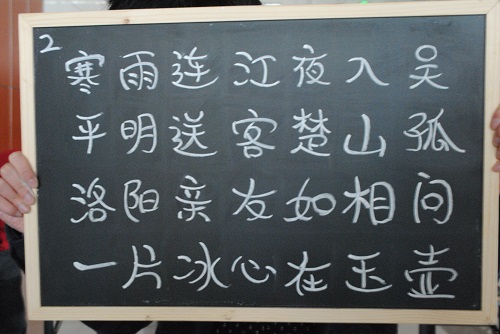 2
寒雨连江夜入吴
平明送客楚山孤
洛阳亲友如相问
一片冰心在玉壶